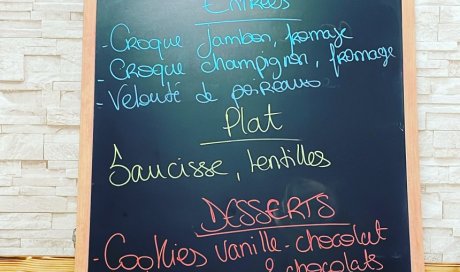 ENTRÉES
- CROQUE Jambon, fromage
- CROQUE champignon, fromage
- Velouté de poireaux
Plat
Saucisse, lentilles
DESSERTS
- Cookies vanille - chocolat
& chocolats